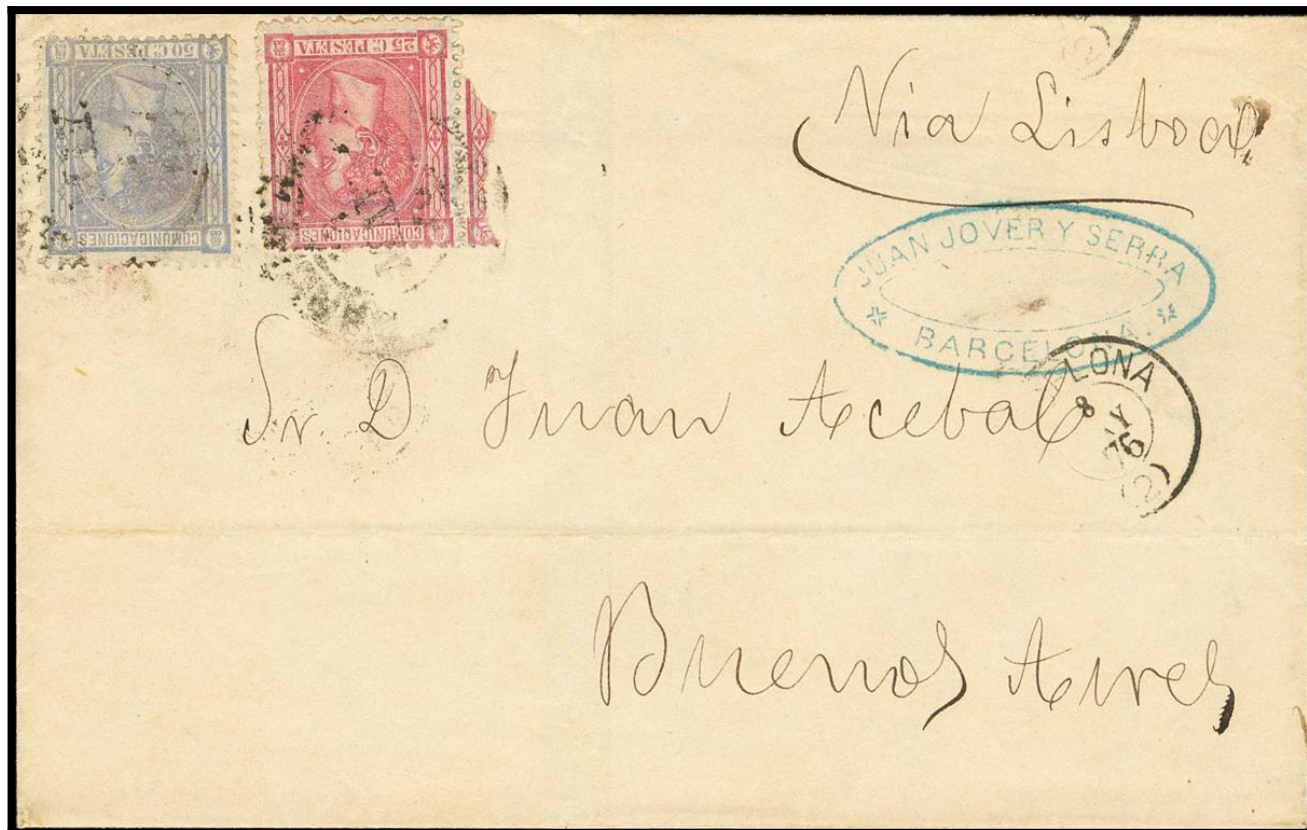 50 C. PESETA
COMUNICACIONES
25 C. PESETA
COMUNICACIONES
Via Lisboa
JUAN JOVER Y SERRA
BARCELONA.
LONA
8
76
(2)
Sr. D Juan Acebal
Buenos Aires